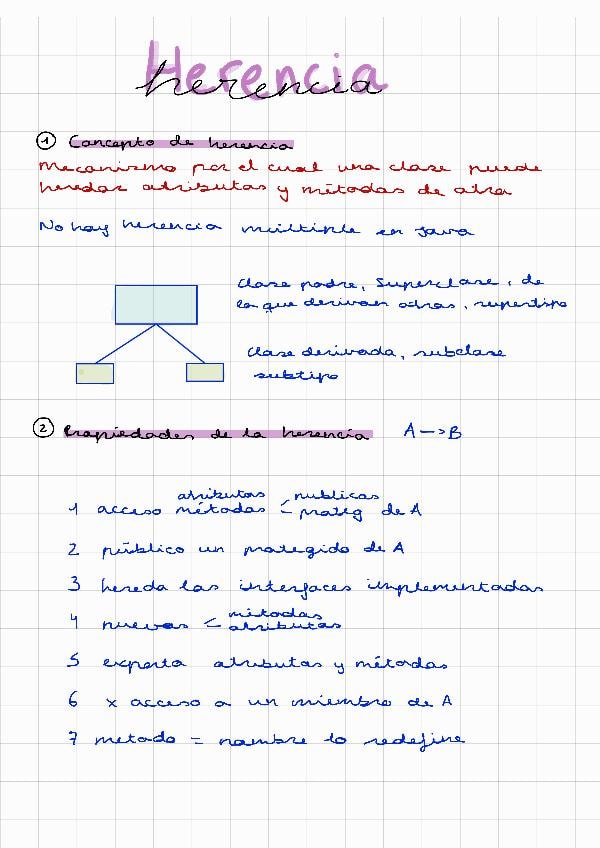 Herencia
herencia
1 Concepto de herencia
Mecanismo por el cual una clase puede
heredar atributos y métodos de otra
No hay herencia múltiple en Java
Clase padre, superclase, de
la que derivan otras, supertipo
Clase derivada, subclase
subtipo
2 Propiedades de la herencia A -> B
atributos publicos
1 acceso métodos < proteg de A
2 público un protegido de A
3 hereda las interfaces implementadas
métodos
4 nuevos < atributos
5 exporta atributos y métodos
6 x acceso a un miembro de A
7 metodo = nombre lo redefine